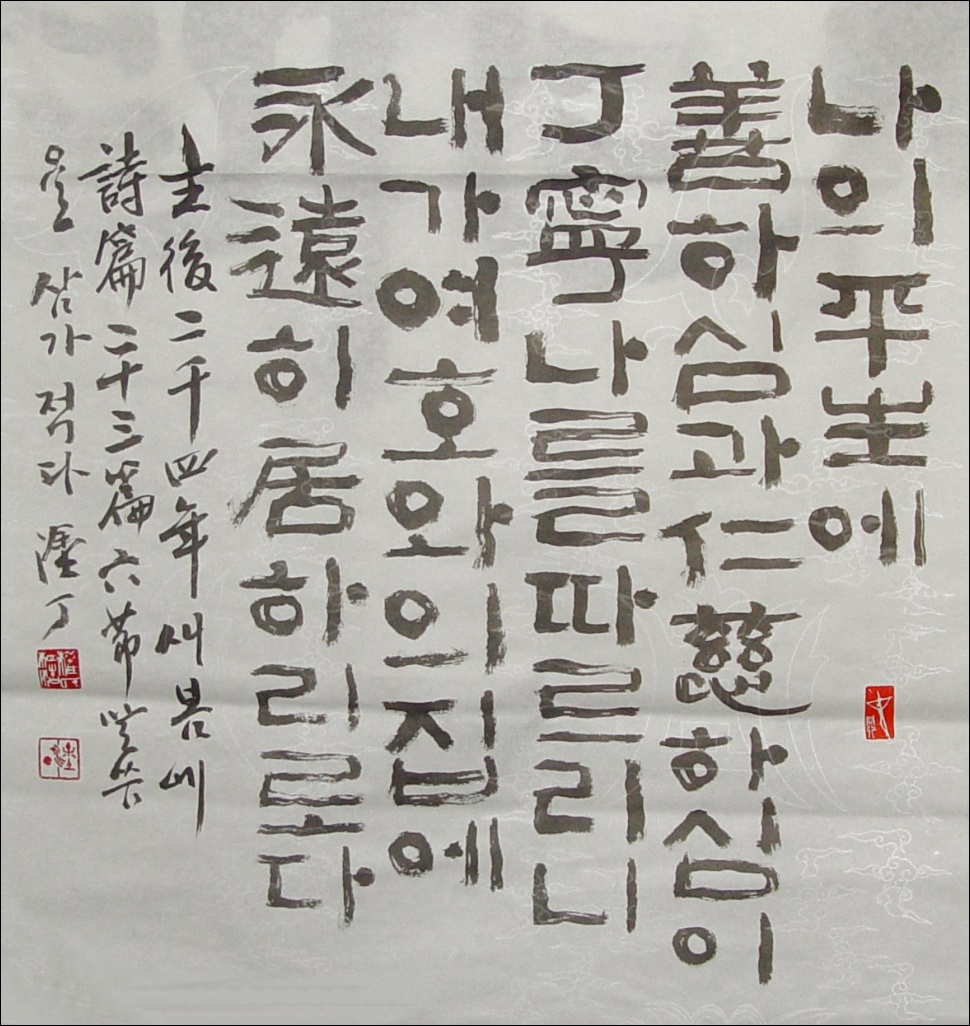 나의平生에
善하심과仁慈하심이
丁寧나를따르리니
내가여호와의집에
永遠히居하리로다
主後二千四年새봄에
詩篇二十三篇六節말씀
을 삼가 적다 丁